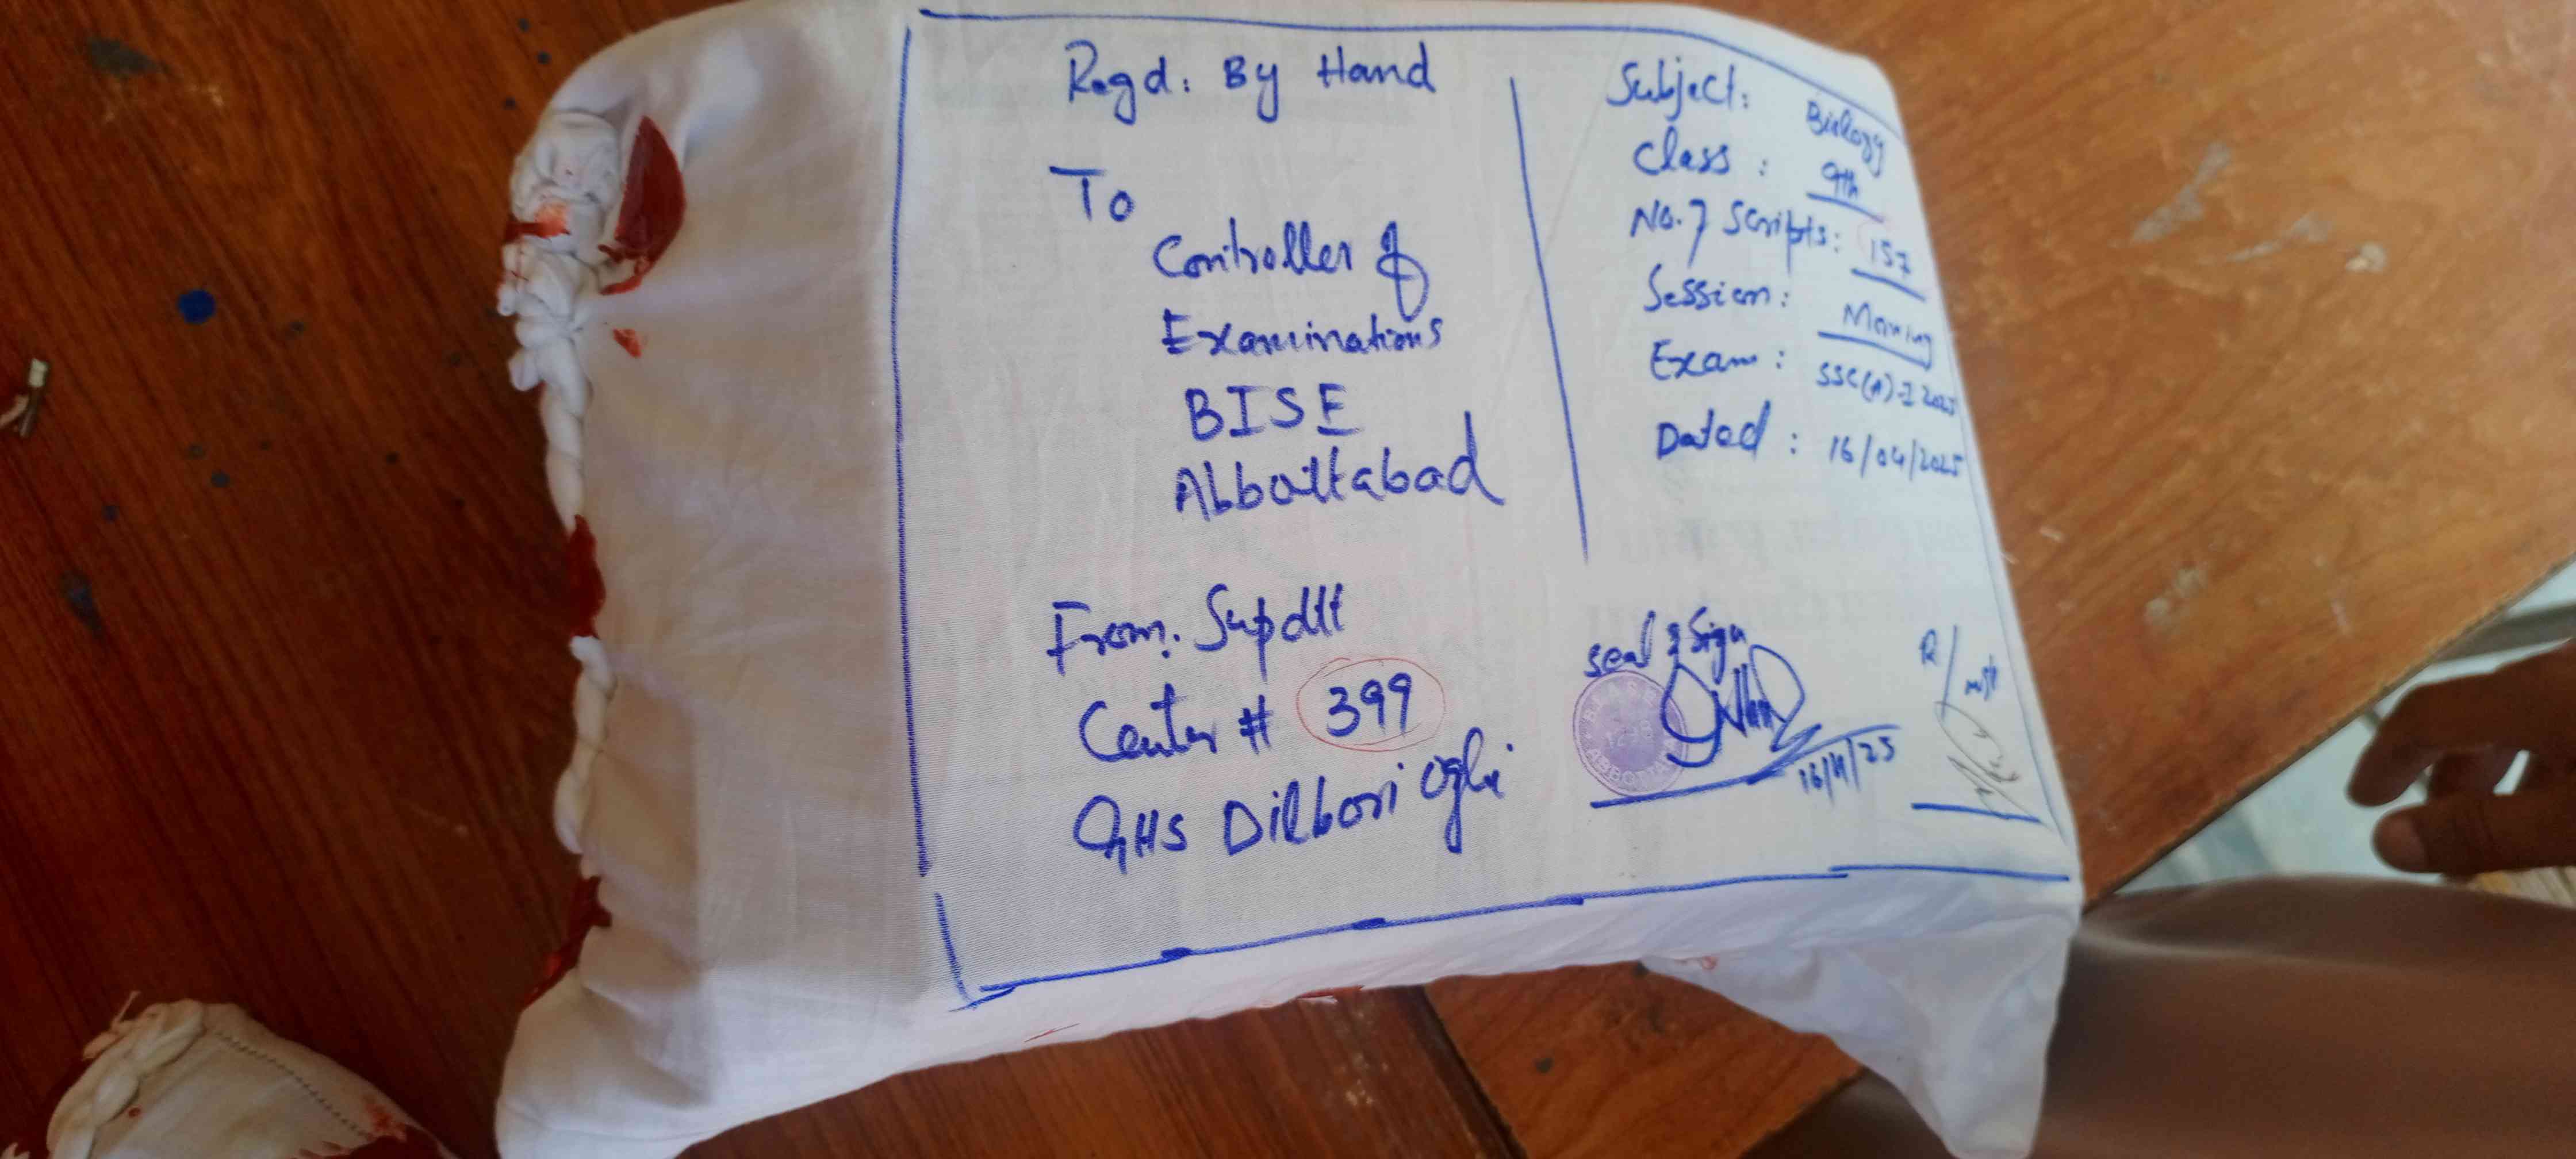 Regd: By Hand
To
Controller of
Examinations
BISE
Abbottabad
From: Supdtt
Center # 399
GHS Dilbori Oghi
Subject: Biology
Class: 9th
No. of Scripts: 157
Session: Morning
Exam: SSC(A)-I 2025
Dated: 16/04/2025
seal & Sign
16/4/25